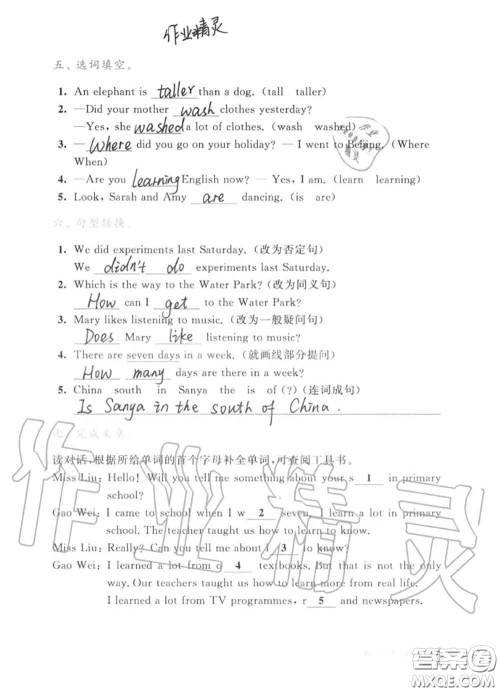 作业精灵
五、选词填空。
1. An elephant is taller than a dog. (tall taller)
2. —Did your mother wash clothes yesterday?
—Yes, she washed a lot of clothes. (wash washed)
3. — Where did you go on your holiday? — I went to Beijing. (Where
When)
4. —Are you learning English now? — Yes, I am. (learn learning)
5. Look, Sarah and Amy are dancing. (is are)
六、句型转换。
1. We did experiments last Saturday. (改为否定句)
We didn't do experiments last Saturday.
2. Which is the way to the Water Park? (改为同义句)
How can I get to the Water Park?
3. Mary likes listening to music. (改为一般疑问句)
Does Mary like listening to music?
4. There are seven days in a week. (就画线部分提问)
How many days are there in a week?
5. China south in Sanya the is of (?) (连词成句)
Is Sanya in the south of China.
七、完成文章。
读对话,根据所给单词的首个字母补全单词,可查阅工具书。
Miss Liu: Hello! Will you tell me something about your s 1 in primary
school?
Gao Wei: I came to school when I w 2 seven. I learn a lot in primary
school. The teacher taught us how to learn to know.
Miss Liu: Really? Can you tell me about l 3 to know?
Gao Wei: I learned a lot from o 4 textbooks. But that is not the only
way. Our teachers taught us how to learn more from real life.
I learned a lot from TV programmes, r 5 and newspapers.
作业精灵